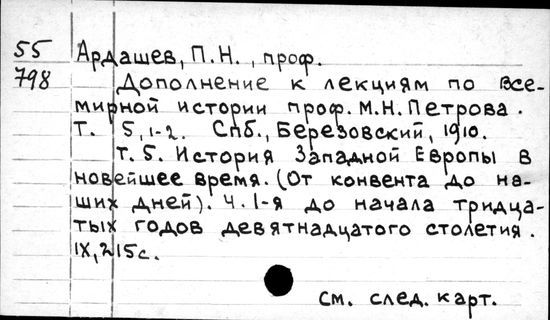 55 Ардашев, П.Н., проф.
798 Дополнение к лекциям по Все-
мирной истории проф. М.Н.Петрова.
Т. 5, 1-2. Спб., Березовский, 1910.
т. 5. История Западной Европы в
новейшее время. (От конвента до на-
ших дней). Ч. 1-я до начала тридца-
тых годов девятнадцатого столетия.
IX, 215с.
см. след. карт.